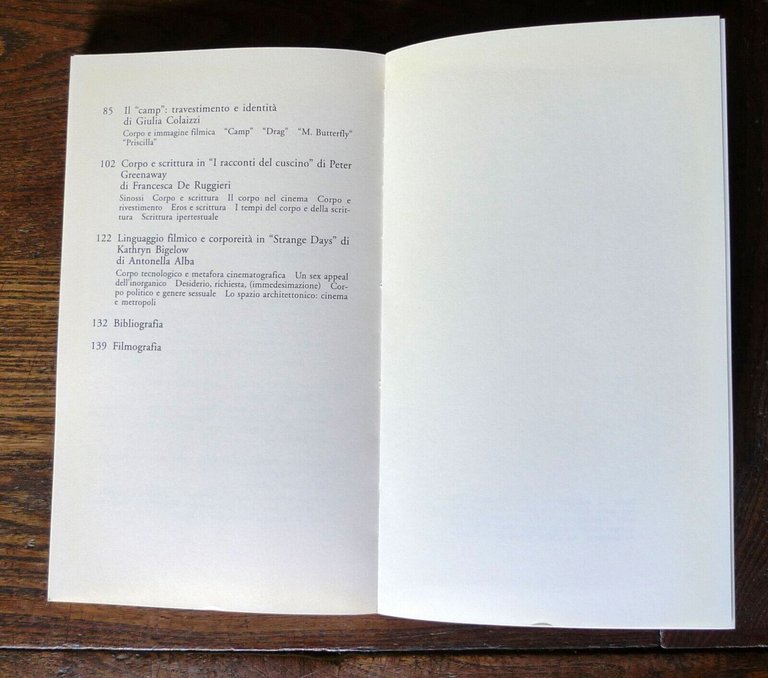 85 Il “camp”: travestimento e identità
di Giulia Colaizzi
Corpo e immagine filmica “Camp” “Drag” “M. Butterfly”
“Priscilla”
102 Corpo e scrittura in “I racconti del cuscino” di Peter
Greenaway
di Francesca De Ruggieri
Sinossi Corpo e scrittura Il corpo nel cinema Corpo e
rivestimento Eros e scrittura I tempi del corpo e della scrit-
tura Scrittura ipertestuale
122 Linguaggio filmico e corporeità in “Strange Days” di
Kathryn Bigelow
di Antonella Alba
Corpo tecnologico e metafora cinematografica Un sex appeal
dell'inorganico Desiderio, richiesta, (immedesimazione) Cor-
po politico e genere sessuale Lo spazio architettonico: cinema
e metropoli
132 Bibliografia
139 Filmografia